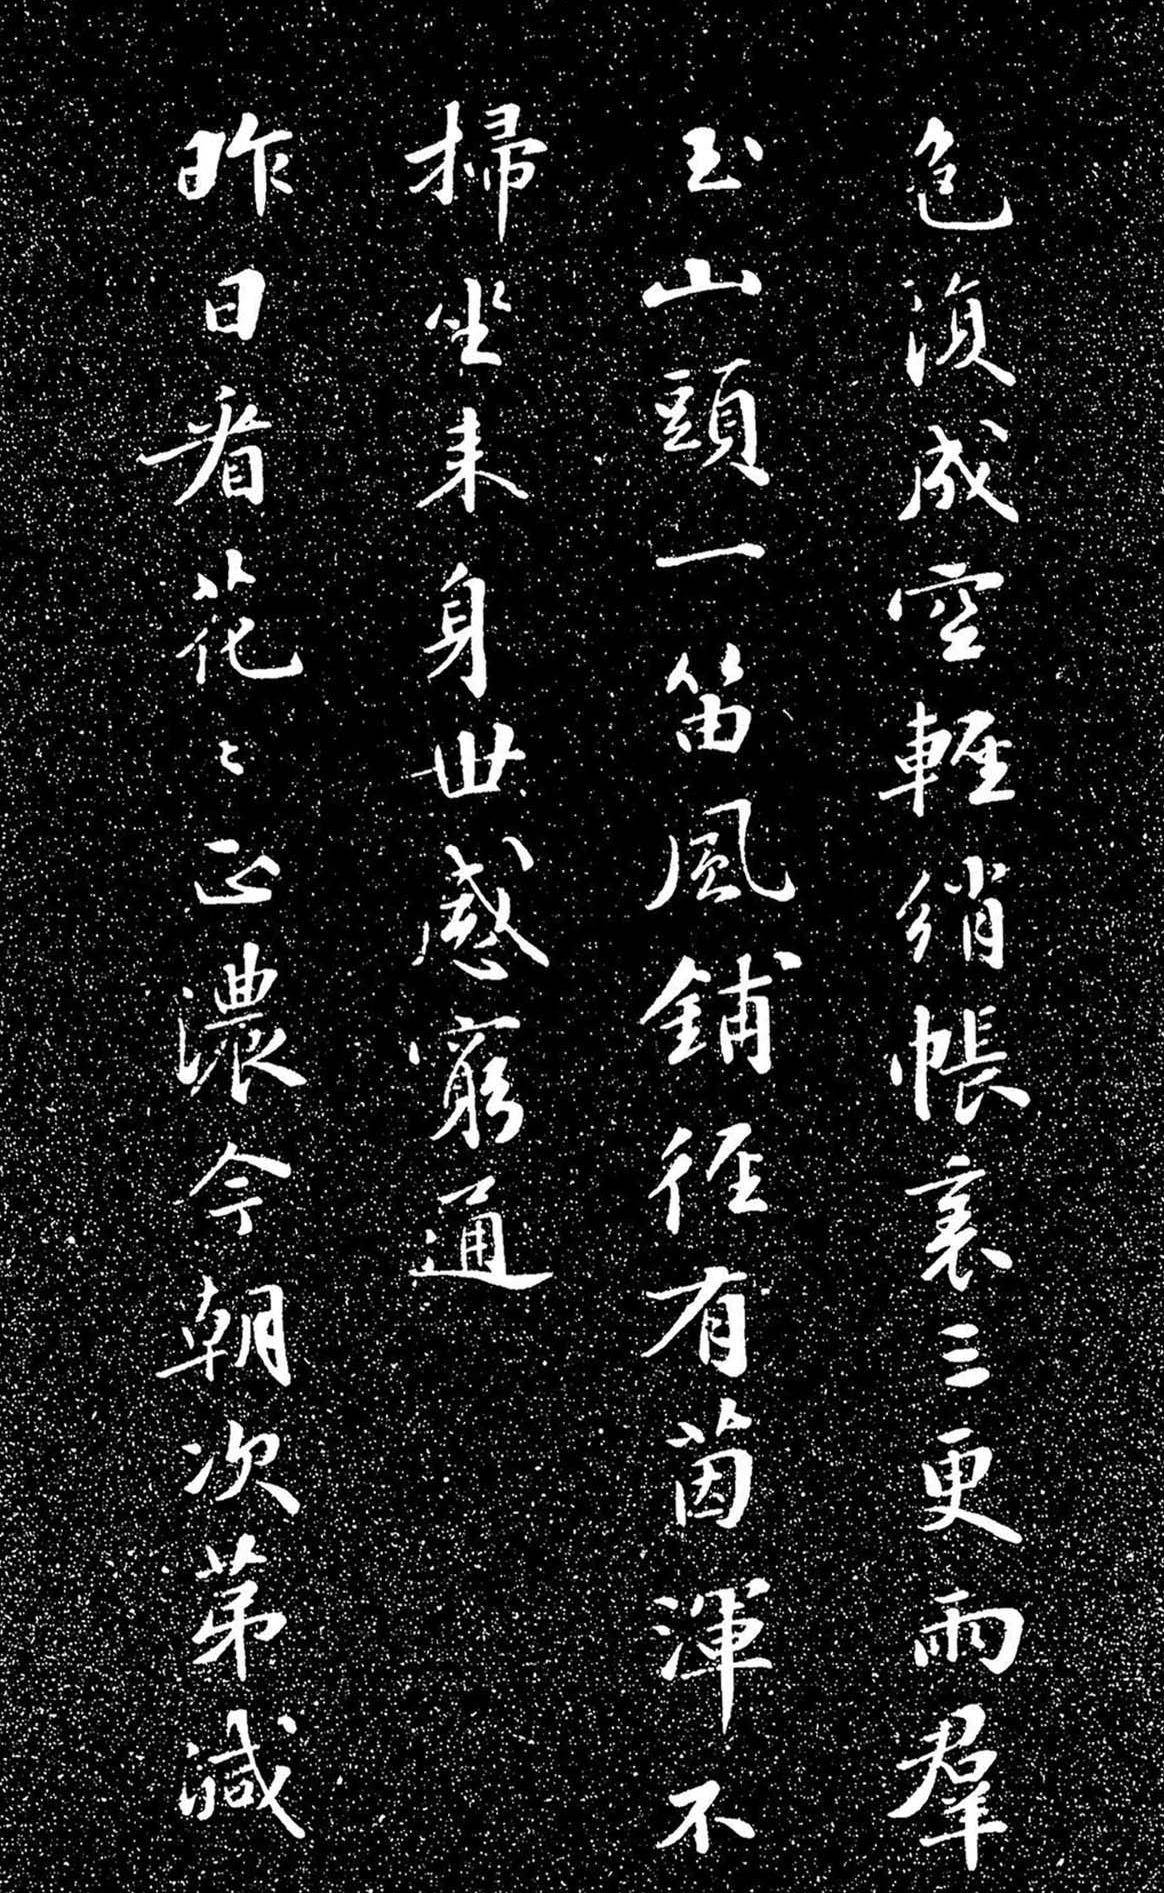 色須成空輕綃帳裏三更雨羣
玉山頭一笛風鋪徑有茵渾不
掃坐来身世感窮通
昨日看花〻正濃今朝次第減